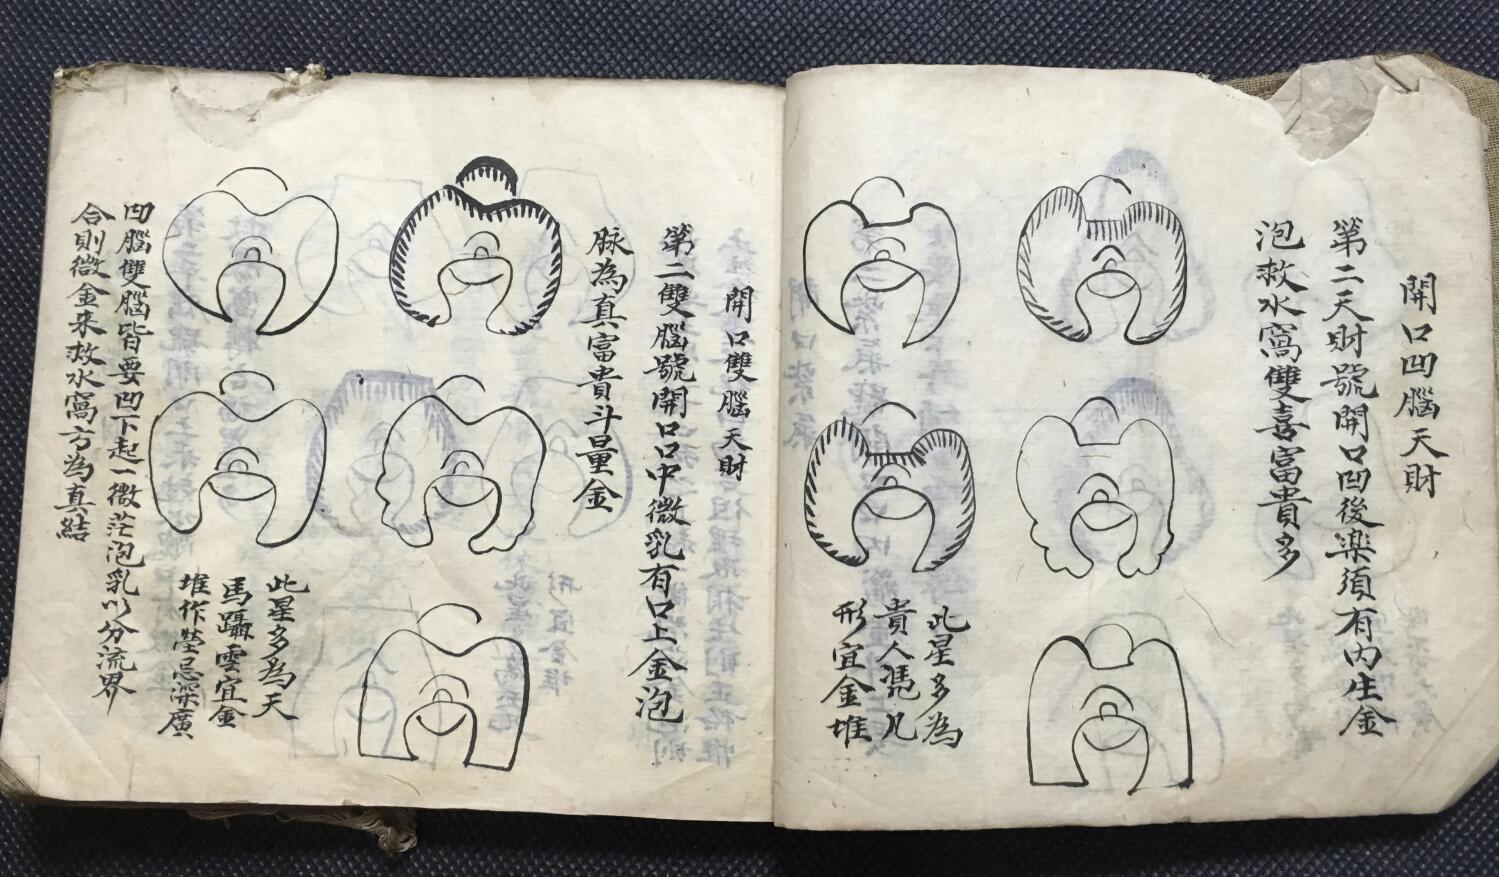 開口凹腦天財
第二天財號開口凹後楽須有内生金
泡救水窩雙喜富貴多
此星多為
貴人凴几
形宜金堆
開口雙腦天財
第二雙腦號開口口中微乳有口上金泡
脉為真富貴斗量金
此星多為天
馬躡雲宜金
堆作塋忌深廣
凹腦雙腦皆要凹下起一微茫泡乳以分流界
合則微金来救水窩方為真結